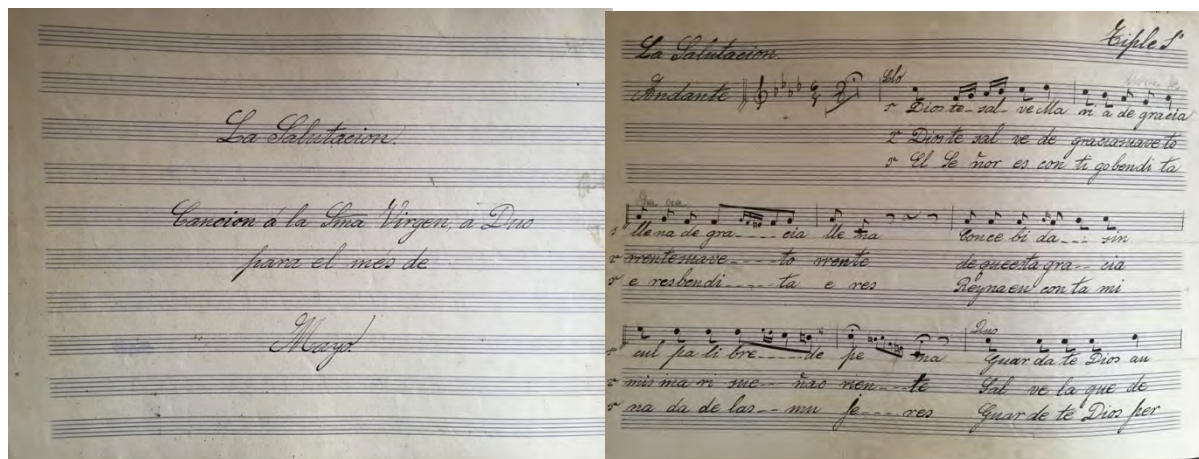 La Salutacion.
Cancion á la Sma Virgen, á Duo
para el més de
Mayo.
Tiple 1º
La Salutacion.
Andante
Solo
1ª Dios te - sal - ve Ma ri a de gracia
2ª Dios te sal ve de gracia suave to
3ª El Se ñor es con ti go bendi ta
1ª llena de gra - - - - cia lle na Conce bi da - - - sin
2ª rrente suave - - - - to rrente de que esta gra - - cia
3ª e res bendi - - - - - ta e res Reyna en con ta mi
1ª cul pa li bre - - - - - de pe na Duo Guar da te Dios au
2ª mis ma ri sue - - ñao rien - - - te Sal ve la que de
3ª na da de las - - - mu je - - - - res Guar de te Dios per